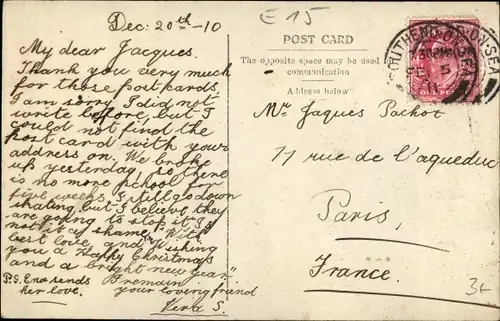 Dec: 20th -10
My dear Jacques.
Thank you very much
for those post cards.
I am sorry I did not
write before, but I
could not find the
post card with your
address on. We broke
up yesterday, so there
is no more school for
five weeks. I still go down
skating, but I believe they
are going to stop it. I
not it a shame. With
best love, and "Wishing
you a Happy Christmas
and a bright new year"
I remain
your loving friend
Vera S.
P.S. Ena sends
her love.
E 15
POST CARD
The opposite space may be used for
communication
Address below
Mr Jaques Pachot
77 rue de l'aqueduc
Paris,
France.
SOUTHEND-ON-SEA
ONE PENNY
3G